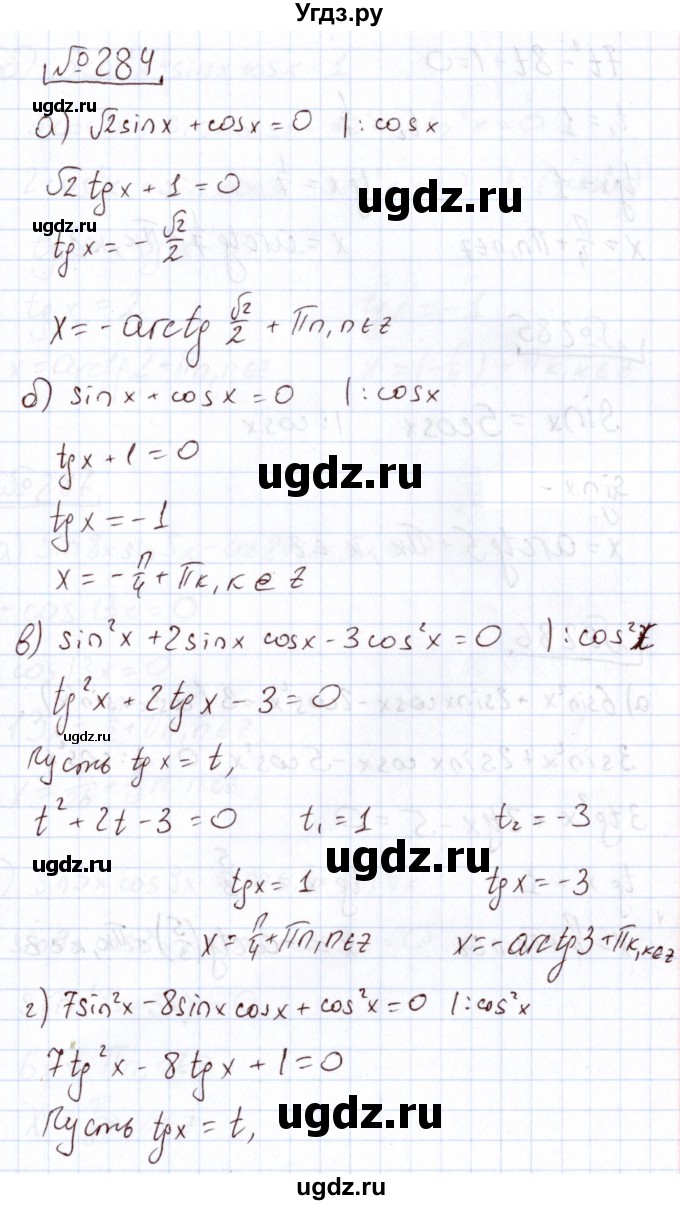 Угдз.ру
№284
ugdz.ru
а) √2sinx + cosx = 0 |: cosx
√2 tgx + 1 = 0
ugdz.ru
ugdz.ru
tgx = - √2/2
x = - arctg √2/2 + πn, n∈z
б) sinx + cosx = 0 |: cosx
tgx + 1 = 0
ugdz.ru
tgx = -1
x = - π/4 + πк, к∈z
ugdz.ru
в) sin²x + 2sinx cosx - 3cos²x = 0 |: cos²x
tg²x + 2tgx - 3 = 0
ugdz.ru
Пусть tgx = t,
t² + 2t - 3 = 0 t₁ = 1 t₂ = -3
ugdz.ru
ugdz.ru
tgx = 1 tgx = -3
x = π/4 + πn, n∈z x = - arctg3 + πк, к∈z
ugdz.ru
г) 7sin²x - 8sinx cosx + cos²x = 0 |: cos²x
7tg²x - 8tgx + 1 = 0
Пусть tgx = t,
ugdz.ru
ugdz.ru